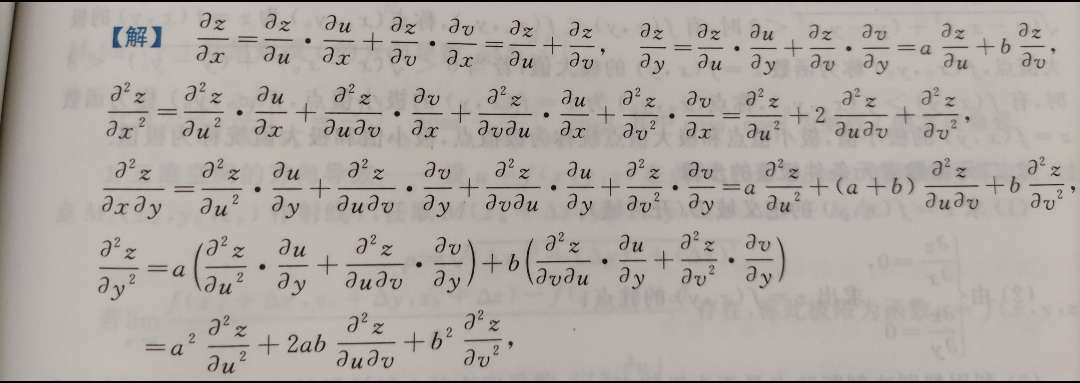 【解】 ∂z/∂x = ∂z/∂u · ∂u/∂x + ∂z/∂v · ∂v/∂x = ∂z/∂u + ∂z/∂v, ∂z/∂y = ∂z/∂u · ∂u/∂y + ∂z/∂v · ∂v/∂y = a ∂z/∂u + b ∂z/∂v,
∂²z/∂x² = ∂²z/∂u² · ∂u/∂x + ∂²z/∂u∂v · ∂v/∂x + ∂²z/∂v∂u · ∂u/∂x + ∂²z/∂v² · ∂v/∂x = ∂²z/∂u² + 2 ∂²z/∂u∂v + ∂²z/∂v²,
∂²z/∂x∂y = ∂²z/∂u² · ∂u/∂y + ∂²z/∂u∂v · ∂v/∂y + ∂²z/∂v∂u · ∂u/∂y + ∂²z/∂v² · ∂v/∂y = a ∂²z/∂u² + (a+b) ∂²z/∂u∂v + b ∂²z/∂v²,
∂²z/∂y² = a(∂²z/∂u² · ∂u/∂y + ∂²z/∂u∂v · ∂v/∂y) + b(∂²z/∂v∂u · ∂u/∂y + ∂²z/∂v² · ∂v/∂y)
= a² ∂²z/∂u² + 2ab ∂²z/∂u∂v + b² ∂²z/∂v²,